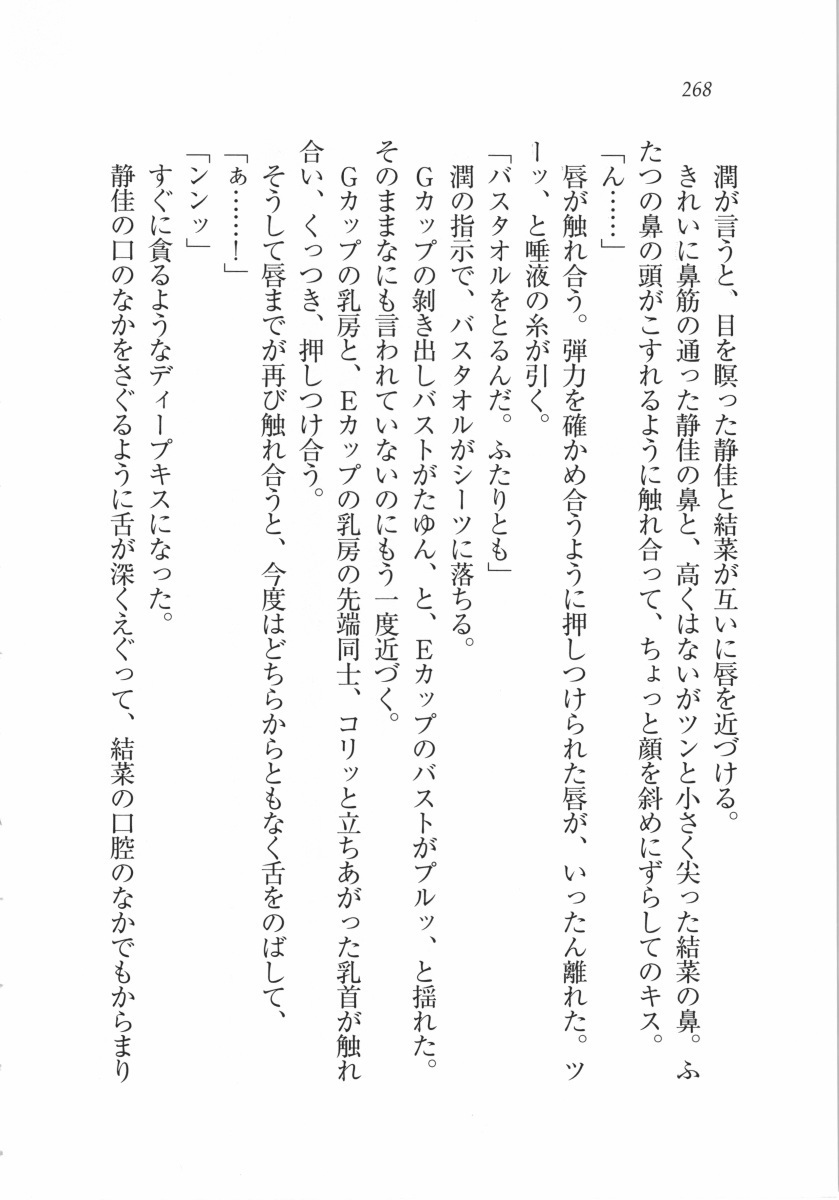 268
潤が言うと、目を瞑った静佳と結菜が互いに唇を近づける。
きれいに鼻筋の通った静佳の鼻と、高くはないがツンと小さく尖った結菜の鼻。ふ
たつの鼻の頭がこすれるように触れ合って、ちょっと顔を斜めにずらしてのキス。
「ん……」
唇が触れ合う。弾力を確かめ合うように押しつけられた唇が、いったん離れた。ツ
ーッ、と唾液の糸が引く。
「バスタオルをとるんだ。ふたりとも」
潤の指示で、バスタオルがシーツに落ちる。
Gカップの剥き出しバストがたゆん、と、Eカップのバストがプルッ、と揺れた。
そのままなにも言われていないのにもう一度近づく。
Gカップの乳房と、Eカップの乳房の先端同士、コリッと立ちあがった乳首が触れ
合い、くっつき、押しつけ合う。
そうして唇までが再び触れ合うと、今度はどちらからともなく舌をのばして、
「ぁ……！」
「ンンッ」
すぐに貪るようなディープキスになった。
静佳の口のなかをさぐるように舌が深くえぐって、結菜の口腔のなかでもからまり